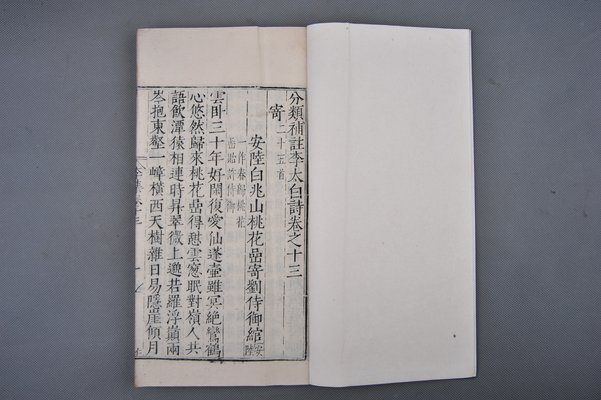 分類補註李太白詩卷之十三
寄二十五首
安陸白兆山桃花嵒寄劉侍御綰安陸
一作春歸桃花
嵒貽許侍御
雲卧三十年好閑復愛仙蓬壺雖冥絶鸞鶴
心悠然歸來桃花嵒得憇雲窓眠對嶺人共
語飲潭猿相連時昇翠微上邈若羅浮巔兩
岑抱東壑一嶂橫西天樹雜日易隱崖傾月